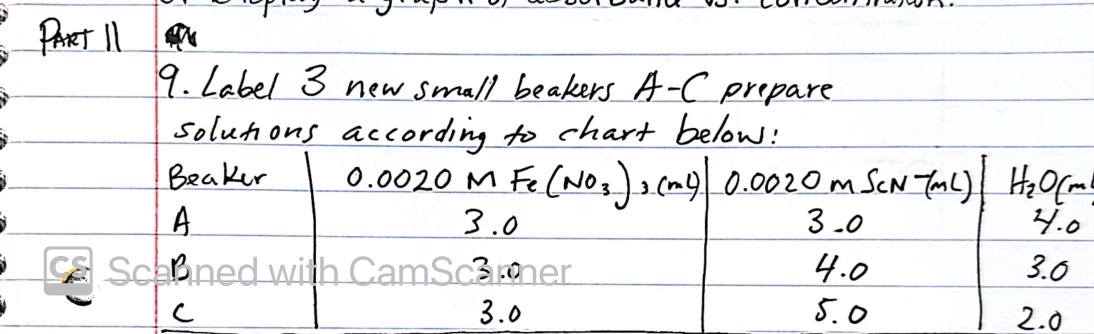 PART II
9. Label 3 new small beakers A-C prepare
solutions according to chart below:
Beaker 0.0020 M Fe(NO3)3 (mL) 0.0020 M SCN- (mL) H2O(mL
A 3.0 3.0 4.0
B 3.0 4.0 3.0
C 3.0 5.0 2.0
CS Scanned with CamScanner